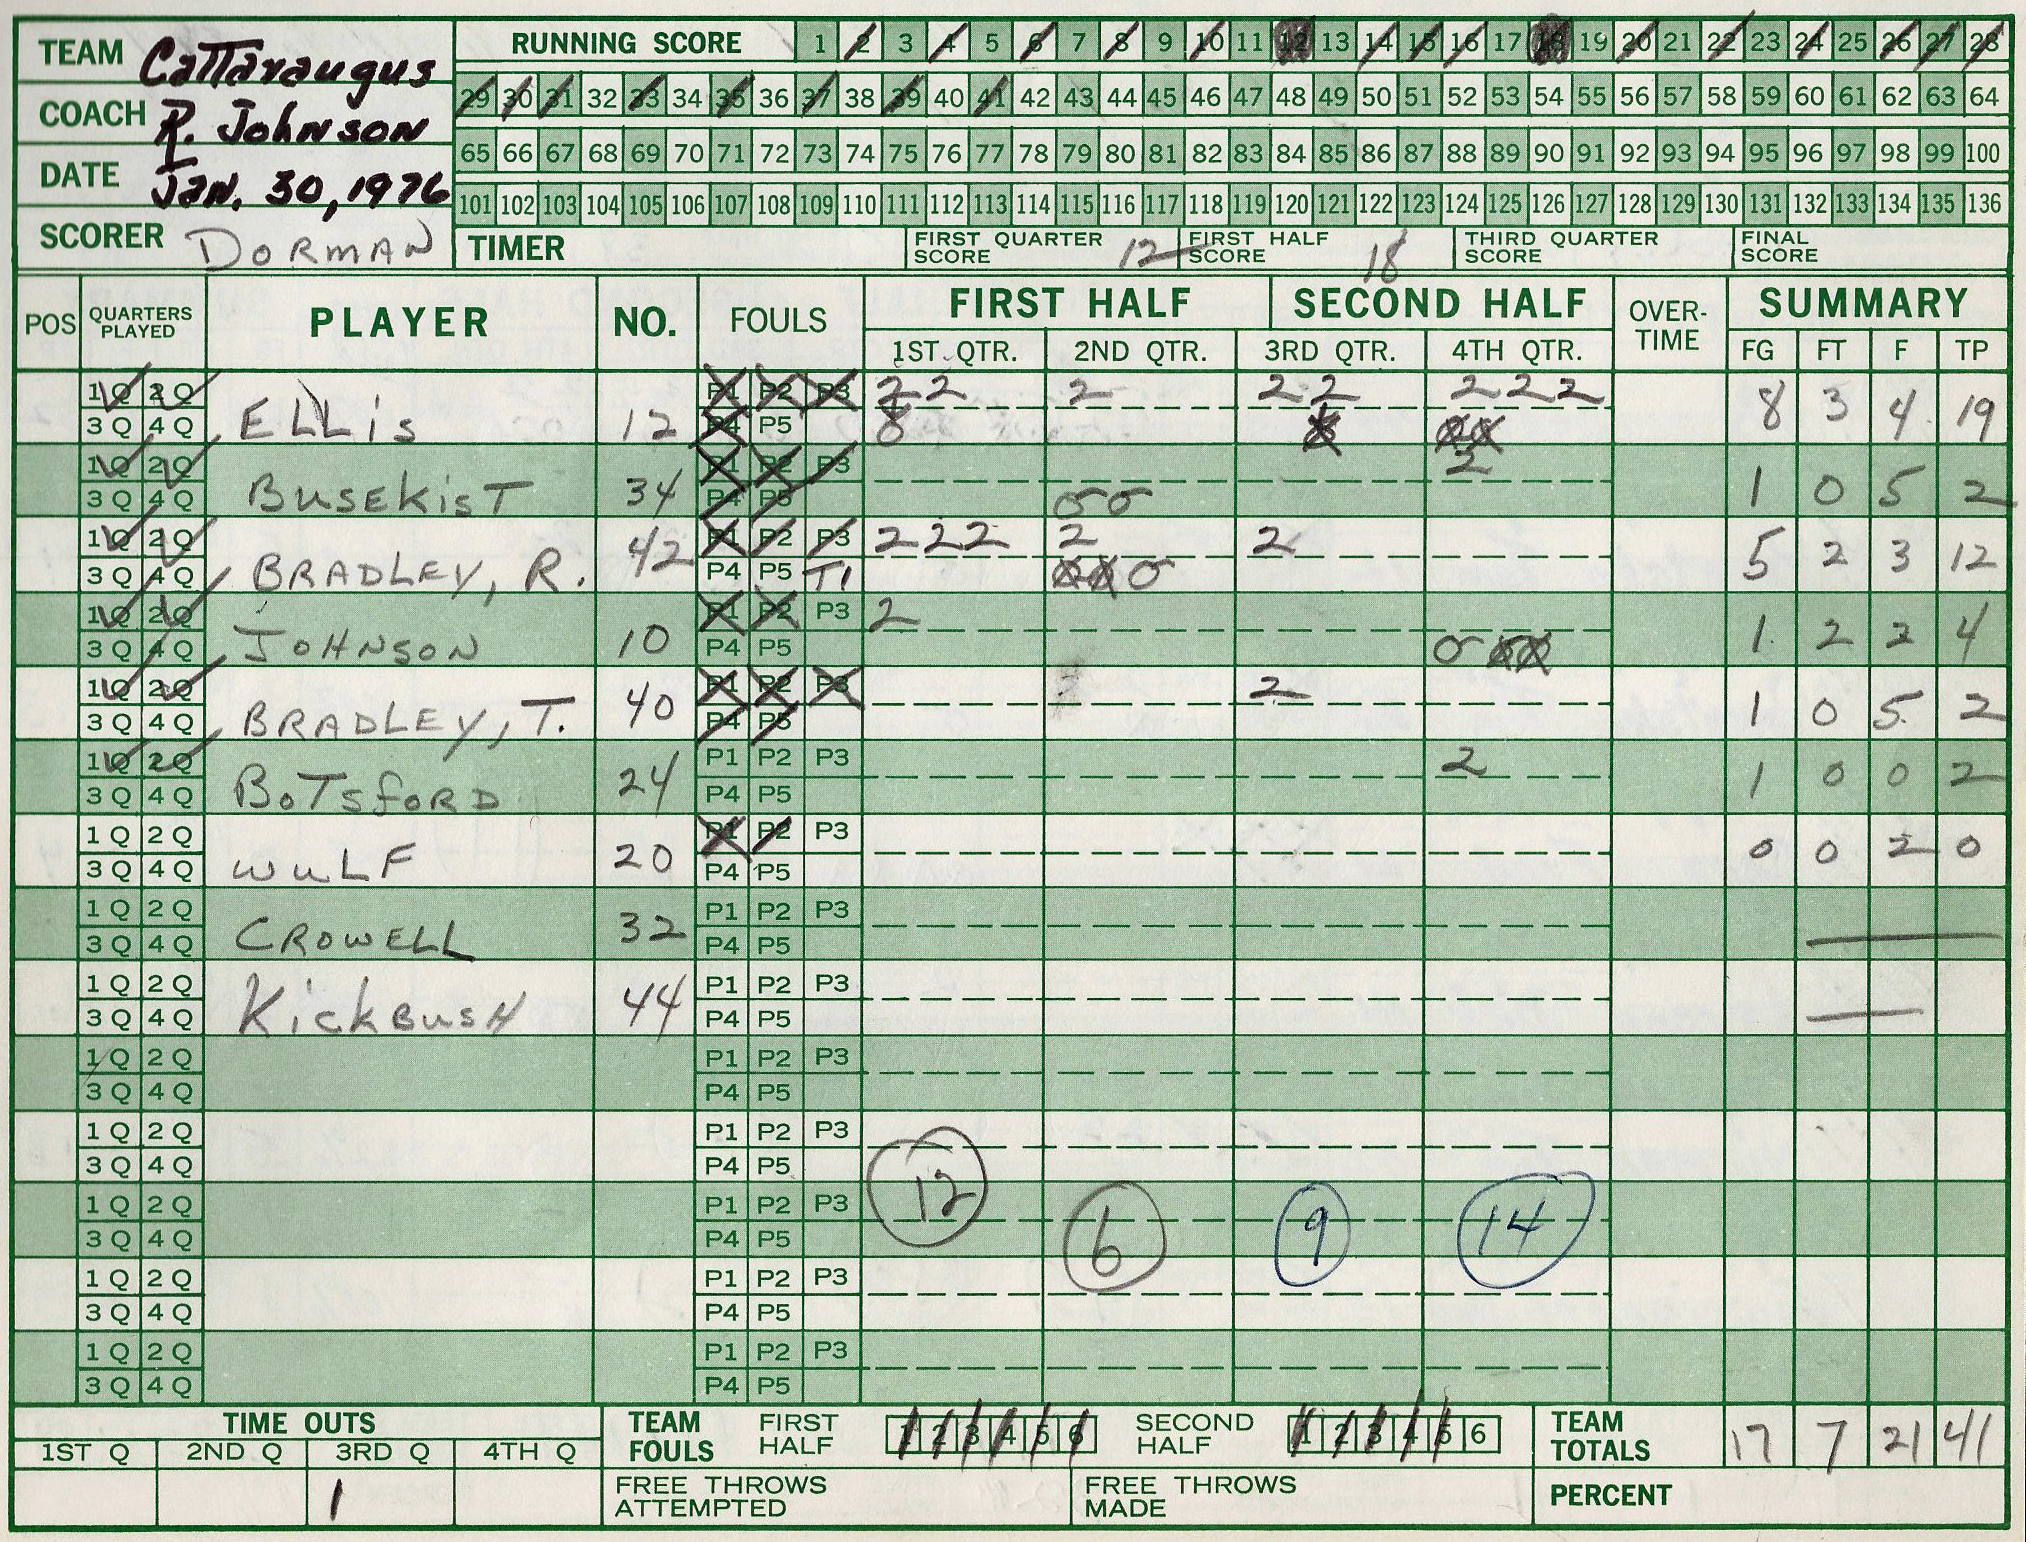 TEAM Cattaraugus
COACH R. Johnson
DATE Jan. 30, 1976
SCORER DORMAN
RUNNING SCORE 1 2 3 4 5 6 7 8 9 10 11 12 13 14 15 16 17 18 19 20 21 22 23 24 25 26 27 28
29 30 31 32 33 34 35 36 37 38 39 40 41 42 43 44 45 46 47 48 49 50 51 52 53 54 55 56 57 58 59 60 61 62 63 64
65 66 67 68 69 70 71 72 73 74 75 76 77 78 79 80 81 82 83 84 85 86 87 88 89 90 91 92 93 94 95 96 97 98 99 100
101 102 103 104 105 106 107 108 109 110 111 112 113 114 115 116 117 118 119 120 121 122 123 124 125 126 127 128 129 130 131 132 133 134 135 136
TIMER FIRST QUARTER SCORE 12 FIRST HALF SCORE 18 THIRD QUARTER SCORE FINAL SCORE
POS QUARTERS PLAYED PLAYER NO. FOULS FIRST HALF SECOND HALF OVER-TIME SUMMARY
1ST QTR. 2ND QTR. 3RD QTR. 4TH QTR. FG FT F TP
1Q 2Q P1 P2 P3 2 2 2 2 2 2 2 2
3Q 4Q ELLIS 12 P4 P5 8 3 4 19
1Q 2Q P1 P2 P3 2
3Q 4Q BUSEKIST 34 P4 P5 O O 1 0 5 2
1Q 2Q P1 P2 P3 2 2 2 2 2
3Q 4Q BRADLEY, R. 42 P4 P5 T1 O 5 2 3 12
1Q 2Q P1 P2 P3 2
3Q 4Q JOHNSON 10 P4 P5 O 1 2 2 4
1Q 2Q P1 P2 P3 2
3Q 4Q BRADLEY, T. 40 P4 P5 1 0 5 2
1Q 2Q P1 P2 P3 2
3Q 4Q BOTSFORD 24 P4 P5 1 0 0 2
1Q 2Q P1 P2 P3
3Q 4Q WULF 20 P4 P5 0 0 2 0
1Q 2Q P1 P2 P3
3Q 4Q CROWELL 32 P4 P5
1Q 2Q P1 P2 P3
3Q 4Q KickBusH 44 P4 P5
1Q 2Q P1 P2 P3
3Q 4Q P4 P5
1Q 2Q P1 P2 P3
3Q 4Q P4 P5
1Q 2Q P1 P2 P3
3Q 4Q P4 P5 12 6 9 14
1Q 2Q P1 P2 P3
3Q 4Q P4 P5
1Q 2Q P1 P2 P3
3Q 4Q P4 P5
TIME OUTS
1ST Q 2ND Q 3RD Q 4TH Q
1
TEAM FOULS FIRST HALF 1 2 3 4 5 6 SECOND HALF 1 2 3 4 5 6
FREE THROWS ATTEMPTED FREE THROWS MADE
TEAM TOTALS 17 7 21 41
PERCENT